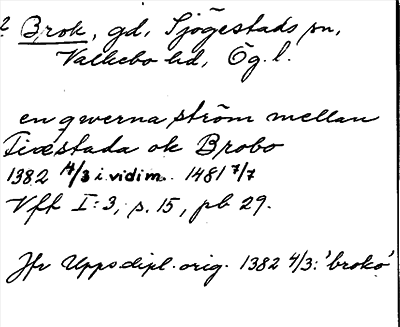 ? Brok, gd, Sjögestads sn,
Valkebo hd, Ög. l.
en qwerna ström mellan
Tiæstada ok Brobo
1382 4/3 i vidim. 1481 7/7
Vfk I:3, s. 15, pb 29.
Jfr Upps dipl. orig. 1382 4/3: 'broko'